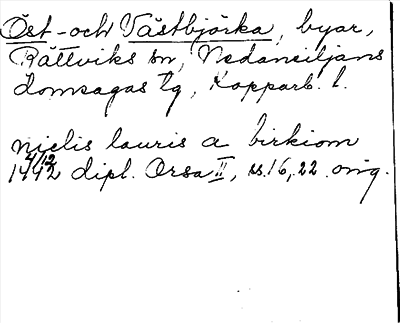 Öst- och Västbjörka, byar,
Rättviks sn, Nedansiljans
domsagas tg, Kopparb. l.
nielis lauris a birkiom
4/12
1442 dipl. Orsa II, ss. 16, 22. orig.